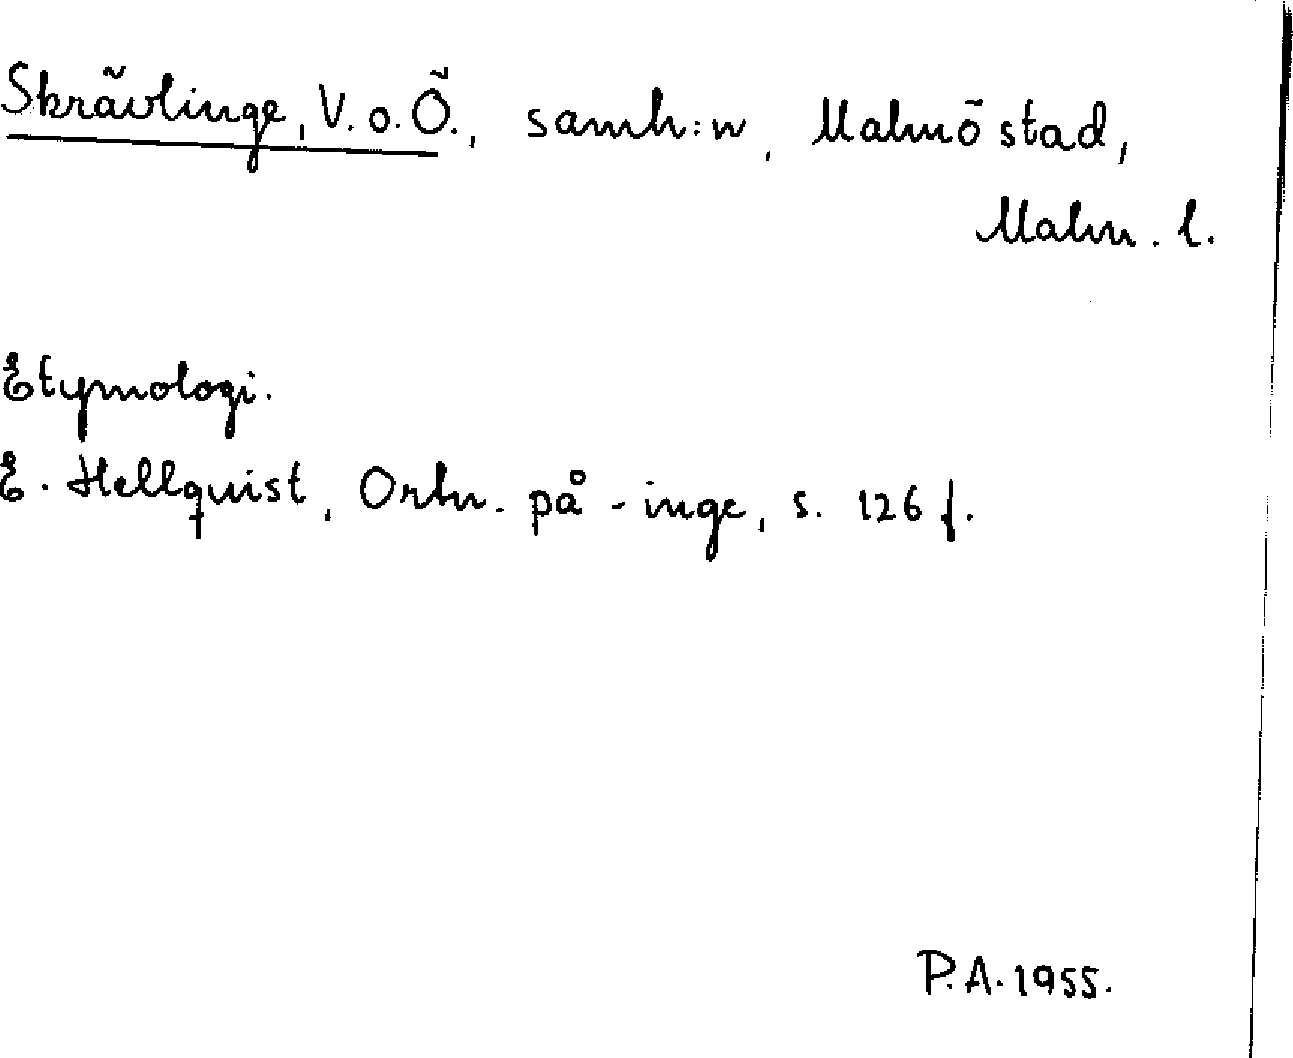 Skrävlinge, V. o. Ö., samh:n, Malmö stad,
Malm. l.
Etymologi.
E. Hellquist, Ortn. på -inge, s. 126 f.
P.A. 1955.